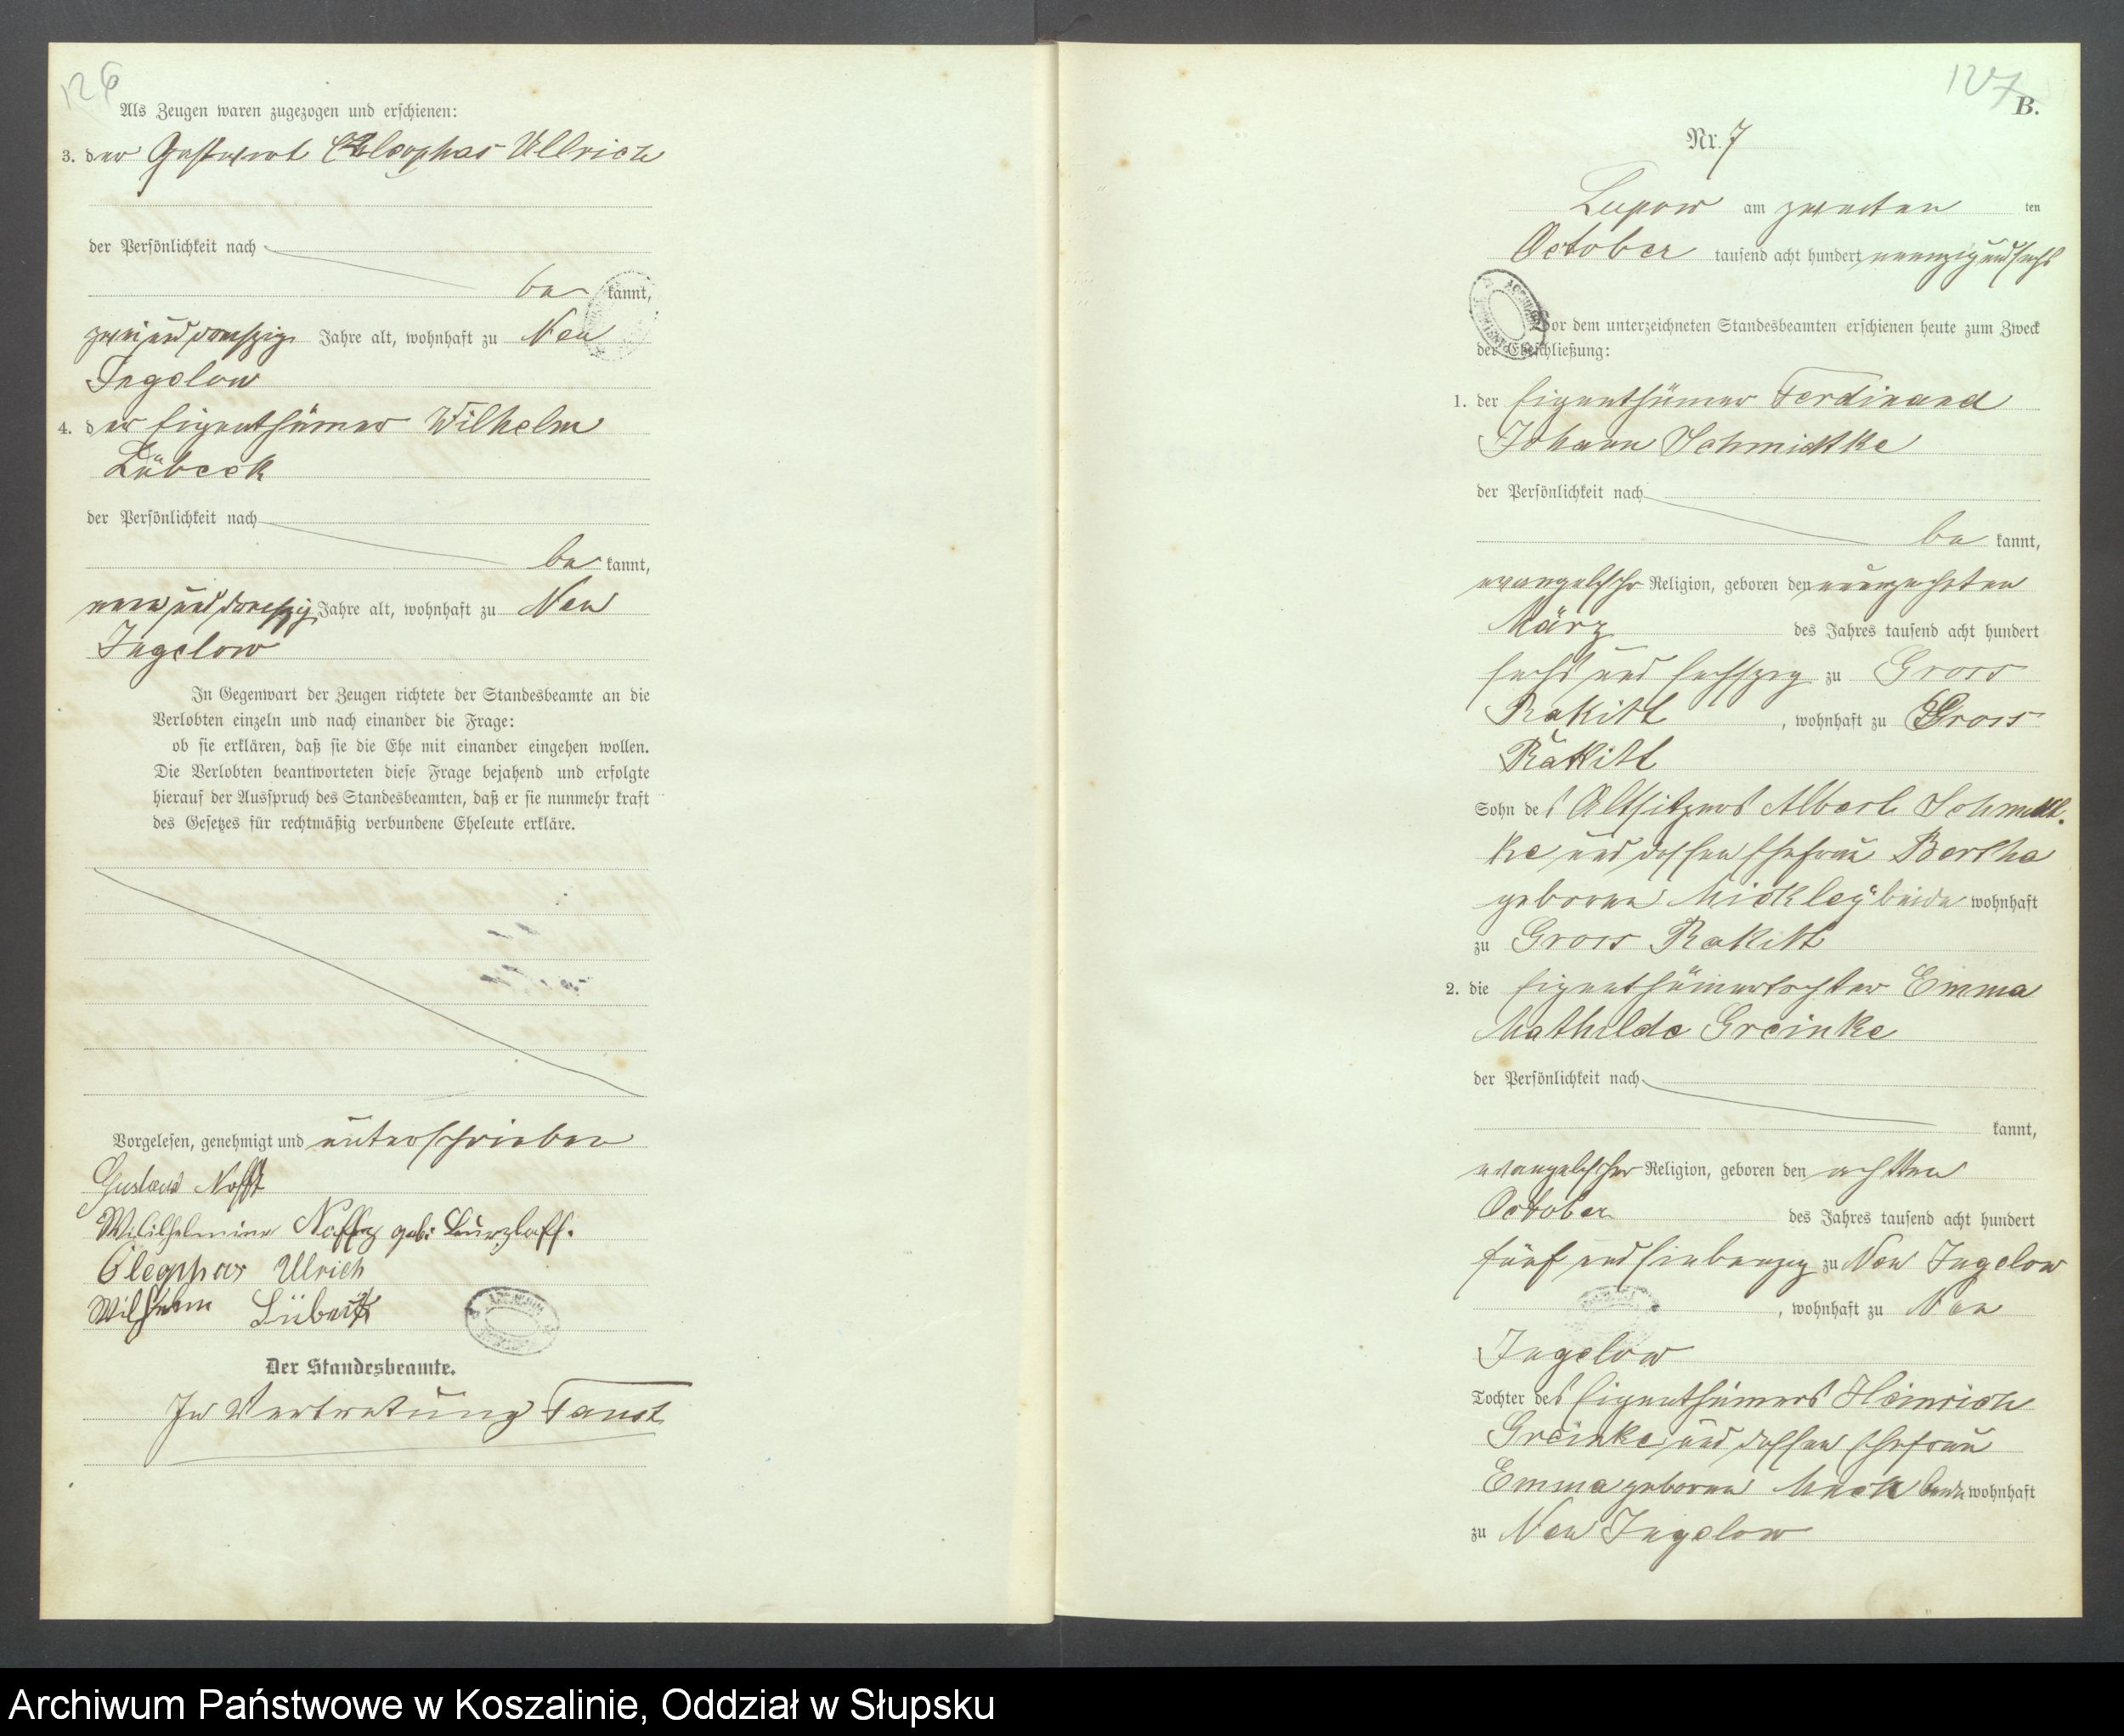 126
Als Zeugen waren zugezogen und erschienen:
3. der Gastwirt Cleophas Ullrich
der Persönlichkeit nach
be kannt,
zweiunddreißig Jahre alt, wohnhaft zu Neu
Jugelow
4. der Eigenthümer Wilhelm
Lübeck
der Persönlichkeit nach
be kannt,
neununddreißig Jahre alt, wohnhaft zu Neu
Jugelow
In Gegenwart der Zeugen richtete der Standesbeamte an die
Verlobten einzeln und nach einander die Frage:
ob sie erklären, daß sie die Ehe mit einander eingehen wollen.
Die Verlobten beantworteten diese Frage bejahend und erfolgte
hierauf der Ausspruch des Standesbeamten, daß er sie nunmehr kraft
des Gesetzes für rechtmäßig verbundene Eheleute erkläre.
Vorgelesen, genehmigt und unterschrieben
Gustav
geb:
Cleophas Ulrich
Wilhelm Lübeck
Der Standesbeamte.
In Vertretung Faust
127
B.
Nr. 7
Lupow am zweiten ten
October tausend acht hundert neunzig und sechs
Vor dem unterzeichneten Standesbeamten erschienen heute zum Zweck
der Eheschließung:
1. der Eigenthümer Ferdinand
Johann Schmidtke
der Persönlichkeit nach
be kannt,
evangelischer Religion, geboren den neunzehnten
März des Jahres tausend acht hundert
sechs und sechszig zu Gross
Rakitt, wohnhaft zu Gross
Rakitt
Sohn des Altsitzers Albert Schmidt-
ke und dessen Ehefrau Bertha
geborene Mickley beide wohnhaft
zu Gross Rakitt
2. die Eigenthümertochter Emma
Mathilde Greinke
der Persönlichkeit nach
kannt,
evangelischer Religion, geboren den achten
October des Jahres tausend acht hundert
fünf und siebenzig zu Neu Jugelow
, wohnhaft zu Neu
Jugelow
Tochter des Eigenthümers Heinrich
Greinke und dessen Ehefrau
Emma geborene beide wohnhaft
zu Neu Jugelow
Archiwum Państwowe w Koszalinie, Oddział w Słupsku